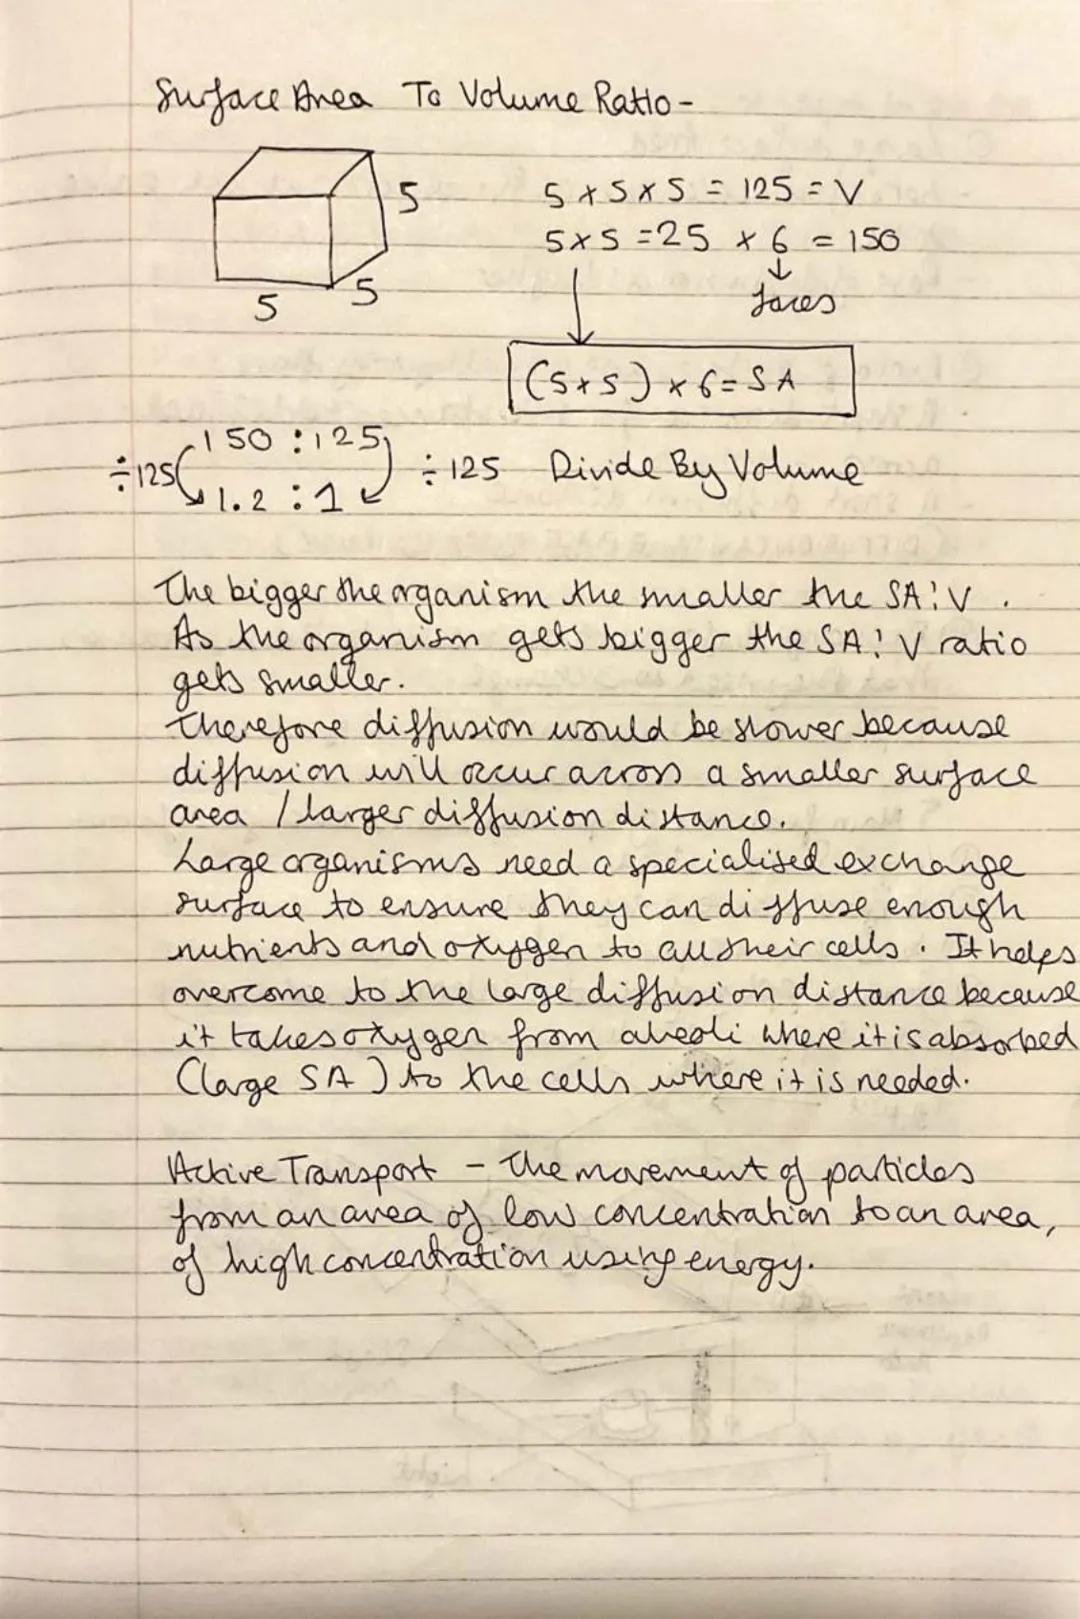 Surface Area To Volume Ratio -
5
5
5
5 x 5 x 5 = 125 = V
5 x 5 = 25 x 6 = 150
↓
faces
(5x5) x 6 = SA
150 : 125
÷125
÷ 125 Divide By Volume
1.2 : 1
The bigger the organism the smaller the SA:V .
As the organism gets bigger the SA:V ratio
gets smaller.
Therefore diffusion would be slower because
diffusion will occur across a smaller surface
area / larger diffusion distance.
Large organisms need a specialised exchange
surface to ensure they can diffuse enough
nutrients and oxygen to all their cells . It helps
overcome to the large diffusion distance because
it takes oxygen from alveoli where it is absorbed
(large SA) to the cells where it is needed.
Active Transport - The movement of particles
from an area of low concentration to an area,
of high concentration using energy.